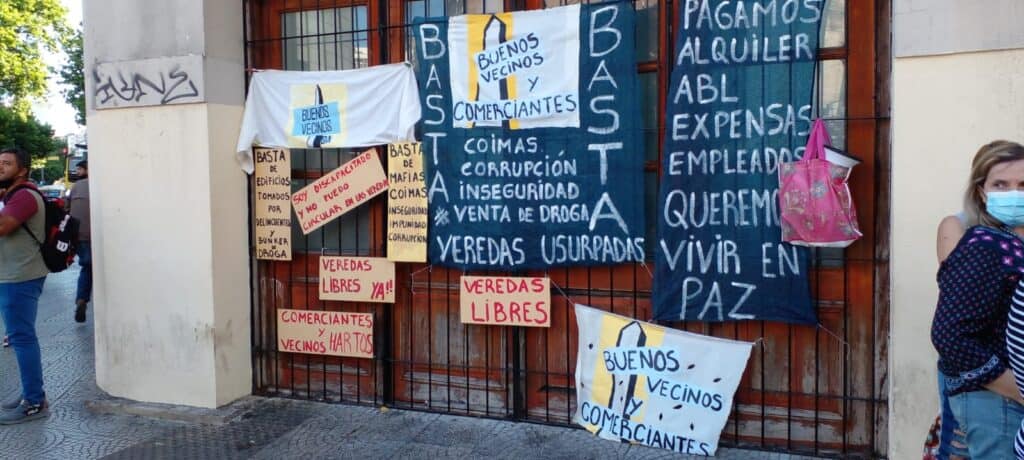 BUENOS
VECINOS
BASTA DE
EDIFICIOS
TOMADOS
POR
DELINCUENTES
Y
BUNKER
DROGA
SOY DISCAPACITADO
Y NO PUEDO
CIRCULAR EN LAS VEREDAS
BASTA
DE
MAFIAS
COIMAS
INSEGURIDAD
IMPUNIDAD
CORRUPCION
VEREDAS
LIBRES YA!!
COMERCIANTES
Y
VECINOS HARTOS
BASTA
BUENOS
VECINOS
Y
COMERCIANTES
BASTA
COIMAS
CORRUPCIÓN
INSEGURIDAD
VENTA DE DROGA
VEREDAS USURPADAS
VEREDAS
LIBRES
PAGAMOS
ALQUILER
ABL
EXPENSAS
EMPLEADOS
VIVIR EN
PAZ
BUENOS
VECINOS
Y
COMERCIANTES